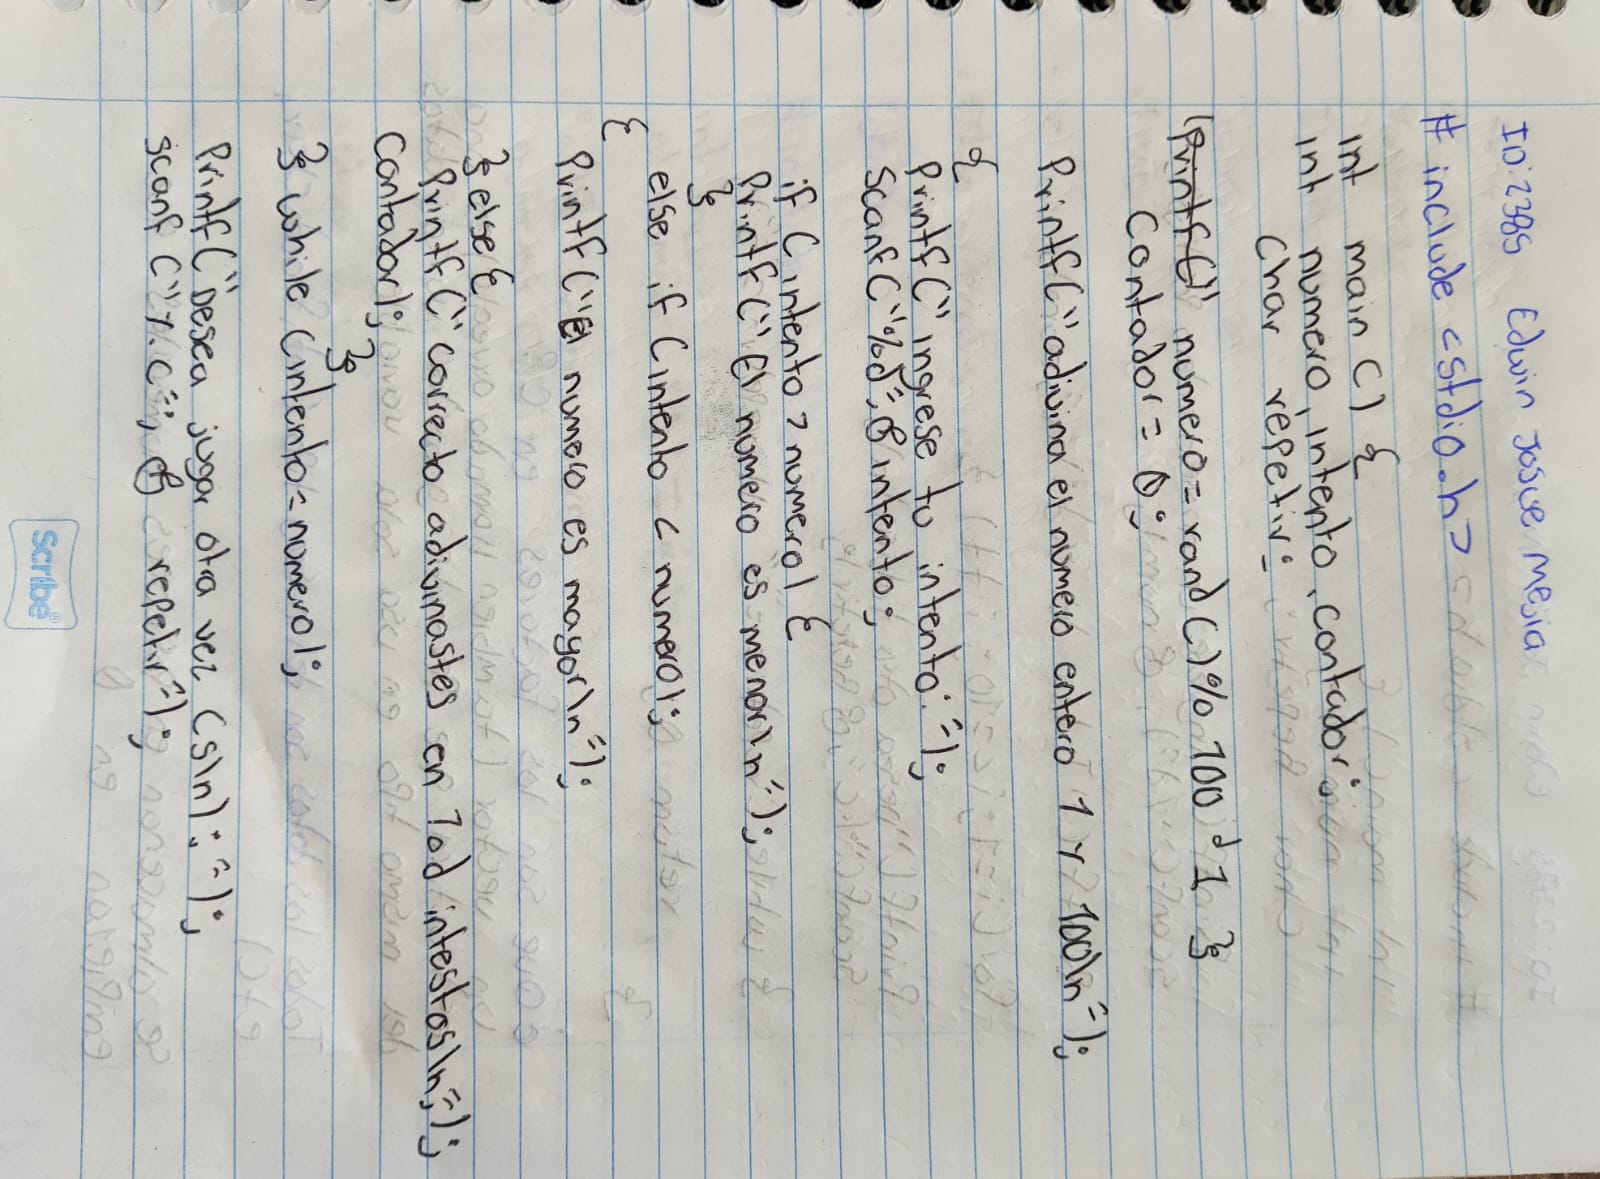 ID:2385 Edwin Josue Mejia
# include <stdio.h>
int main () {
int numero, intento, contador;
char repetir;
numero = rand () % 100 + 1 }
Contador = 0;
Printf (" adivina el numero entero 1 y 100\n");
{
Printf (" ingrese tu intento: ");
Scanf ("%d", & intento;
if ( intento > numero) {
Printf (" El numero es menor\n");
}
else if ( intento < numero);
{
Printf (" El numero es mayor\n");
} else {
Printf (" correcto adivinastes en %d intestos\n",");
Contador);
}
} while ( intento = numero);
Printf (" Desea jugar otra vez (s\n): ");
scanf (" %c", & repetir");
Scribe®